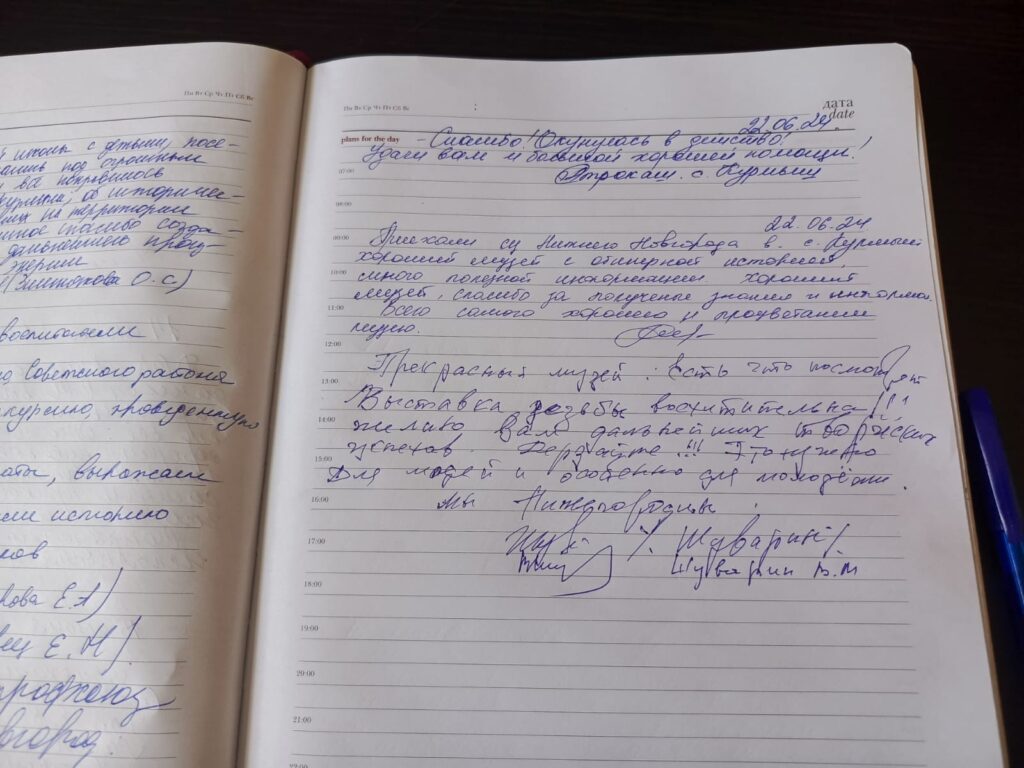 Пн Вт Ср Чт Пт Сб Вс
школы с детьми, посе-
под огромным
и все покрывалось
Курмыша, об историчес-
на территории
спасибо созда-
дальнейшего проц-
энергии
О.С.)
воспитатели
Советского района
экскурсию, проведенную
выражаем
историю
Е.А)
Е.Н)
профсоюз
Пн Вт Ср Чт Пт Сб Вс
дата
date
22.06.24.
plans for the day
- Спасибо! Окунулась в детство!
Удачи вам и большой хорошей помощи!
07:00
с. Курмыш
08:00
22.06.24
09:00
Приехали из Нижнего Новгорода в с. Курмыш
хороший музей с обширной историей
10:00
много полезной информации. хороший
музей, спасибо за полученые знания и информа.
11:00
Всего самого хорошего и процветания
музею.
12:00
Прекрасный музей! Есть что посмотреть
13:00
Выставка резьбы восхитительна!!!
14:00
желаю вам дальнейших творческих
успехов. Дерзайте!!! Это нужно
15:00
Для людей и особенно для молодёжи.
16:00
мы Нижегородцы.
17:00
Шуварин
Шуварин В.М
18:00
19:00
20:00
21:00
22:00